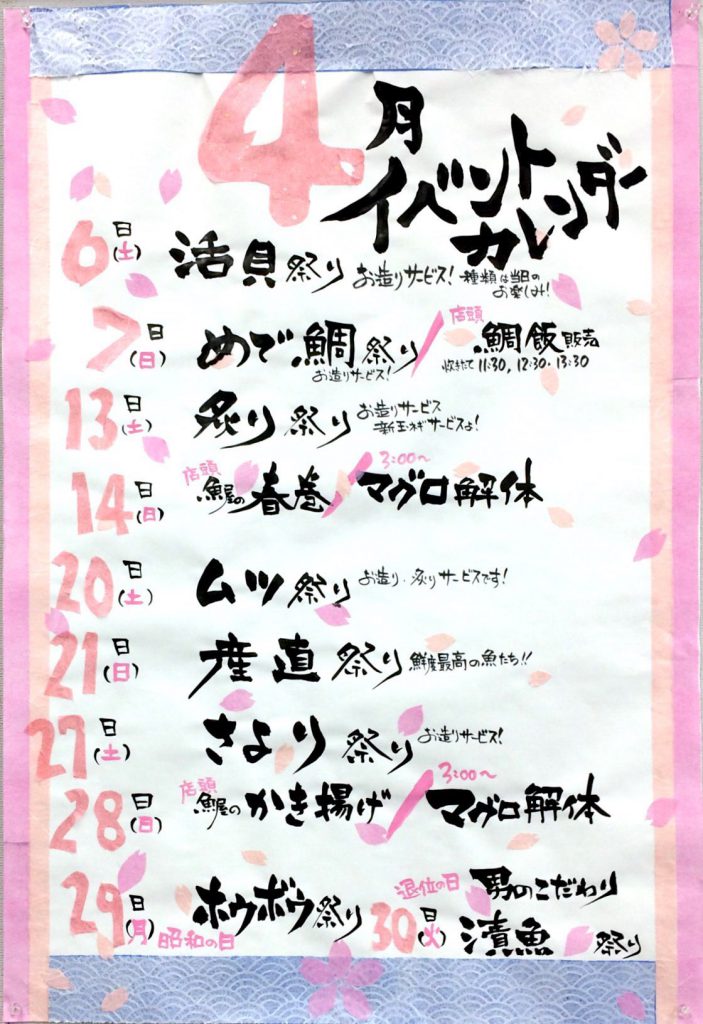 4月
イベント
カレンダー
6日(土) 活貝祭り お造りサービス! 種類は当日の
お楽しみ!
7日(日) めで鯛祭り/店頭 鯛飯販売
お造りサービス! 炊きたて 11:30, 12:30・13:30
13日(土) 炙り祭り お造りサービス
新玉ネギサービスよ!
14日(日) 店頭 魚屋の春巻/3:00〜 マグロ解体
20日(土) ムツ祭り お造り・炙りサービスです!
21日(日) 産直祭り 鮮度最高の魚たち!!
27日(土) さより祭り お造りサービス!
28日(日) 店頭 魚屋のかき揚げ/3:00〜 マグロ解体
29日(月) 昭和の日 ホウボウ祭り
30日(火) 退位の日 男のこだわり
漬魚祭り